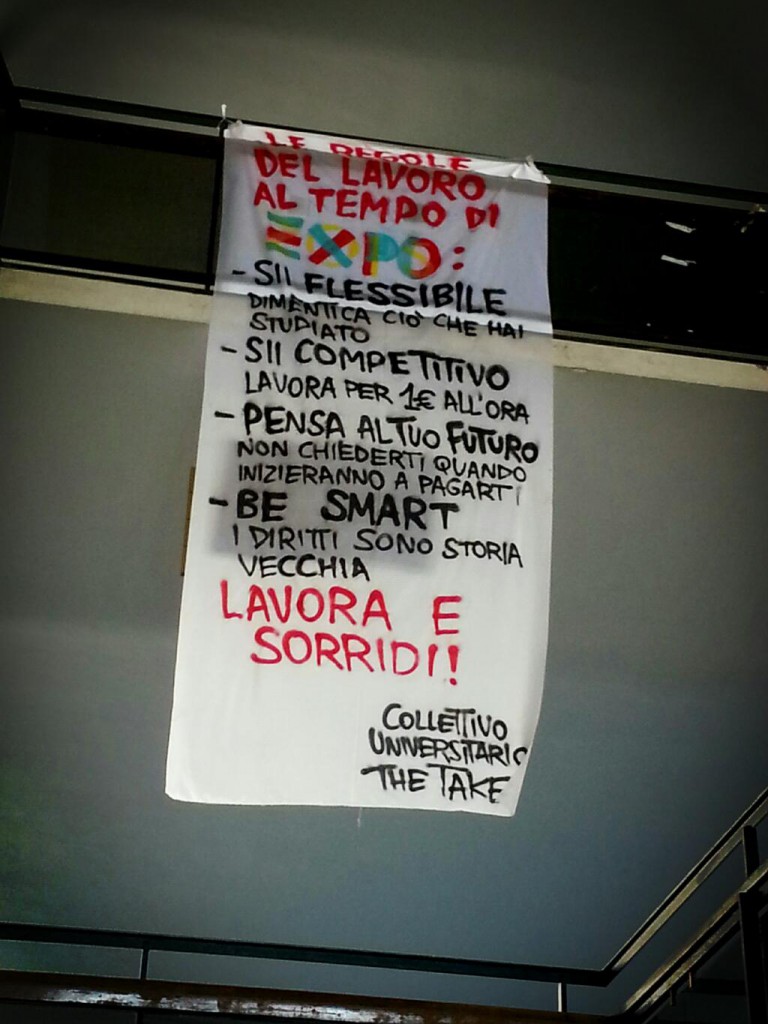 LE REGOLE
DEL LAVORO
AL TEMPO DI
EXPO:
- SII FLESSIBILE
DIMENTICA CIÒ CHE HAI
STUDIATO
- SII COMPETITIVO
LAVORA PER 1€ ALL'ORA
- PENSA AL TUO FUTURO
NON CHIEDERTI QUANDO
INIZIERANNO A PAGARTI
- BE SMART
I DIRITTI SONO STORIA
VECCHIA
LAVORA E
SORRIDI!
COLLETTIVO
UNIVERSITARIO
THE TAKE